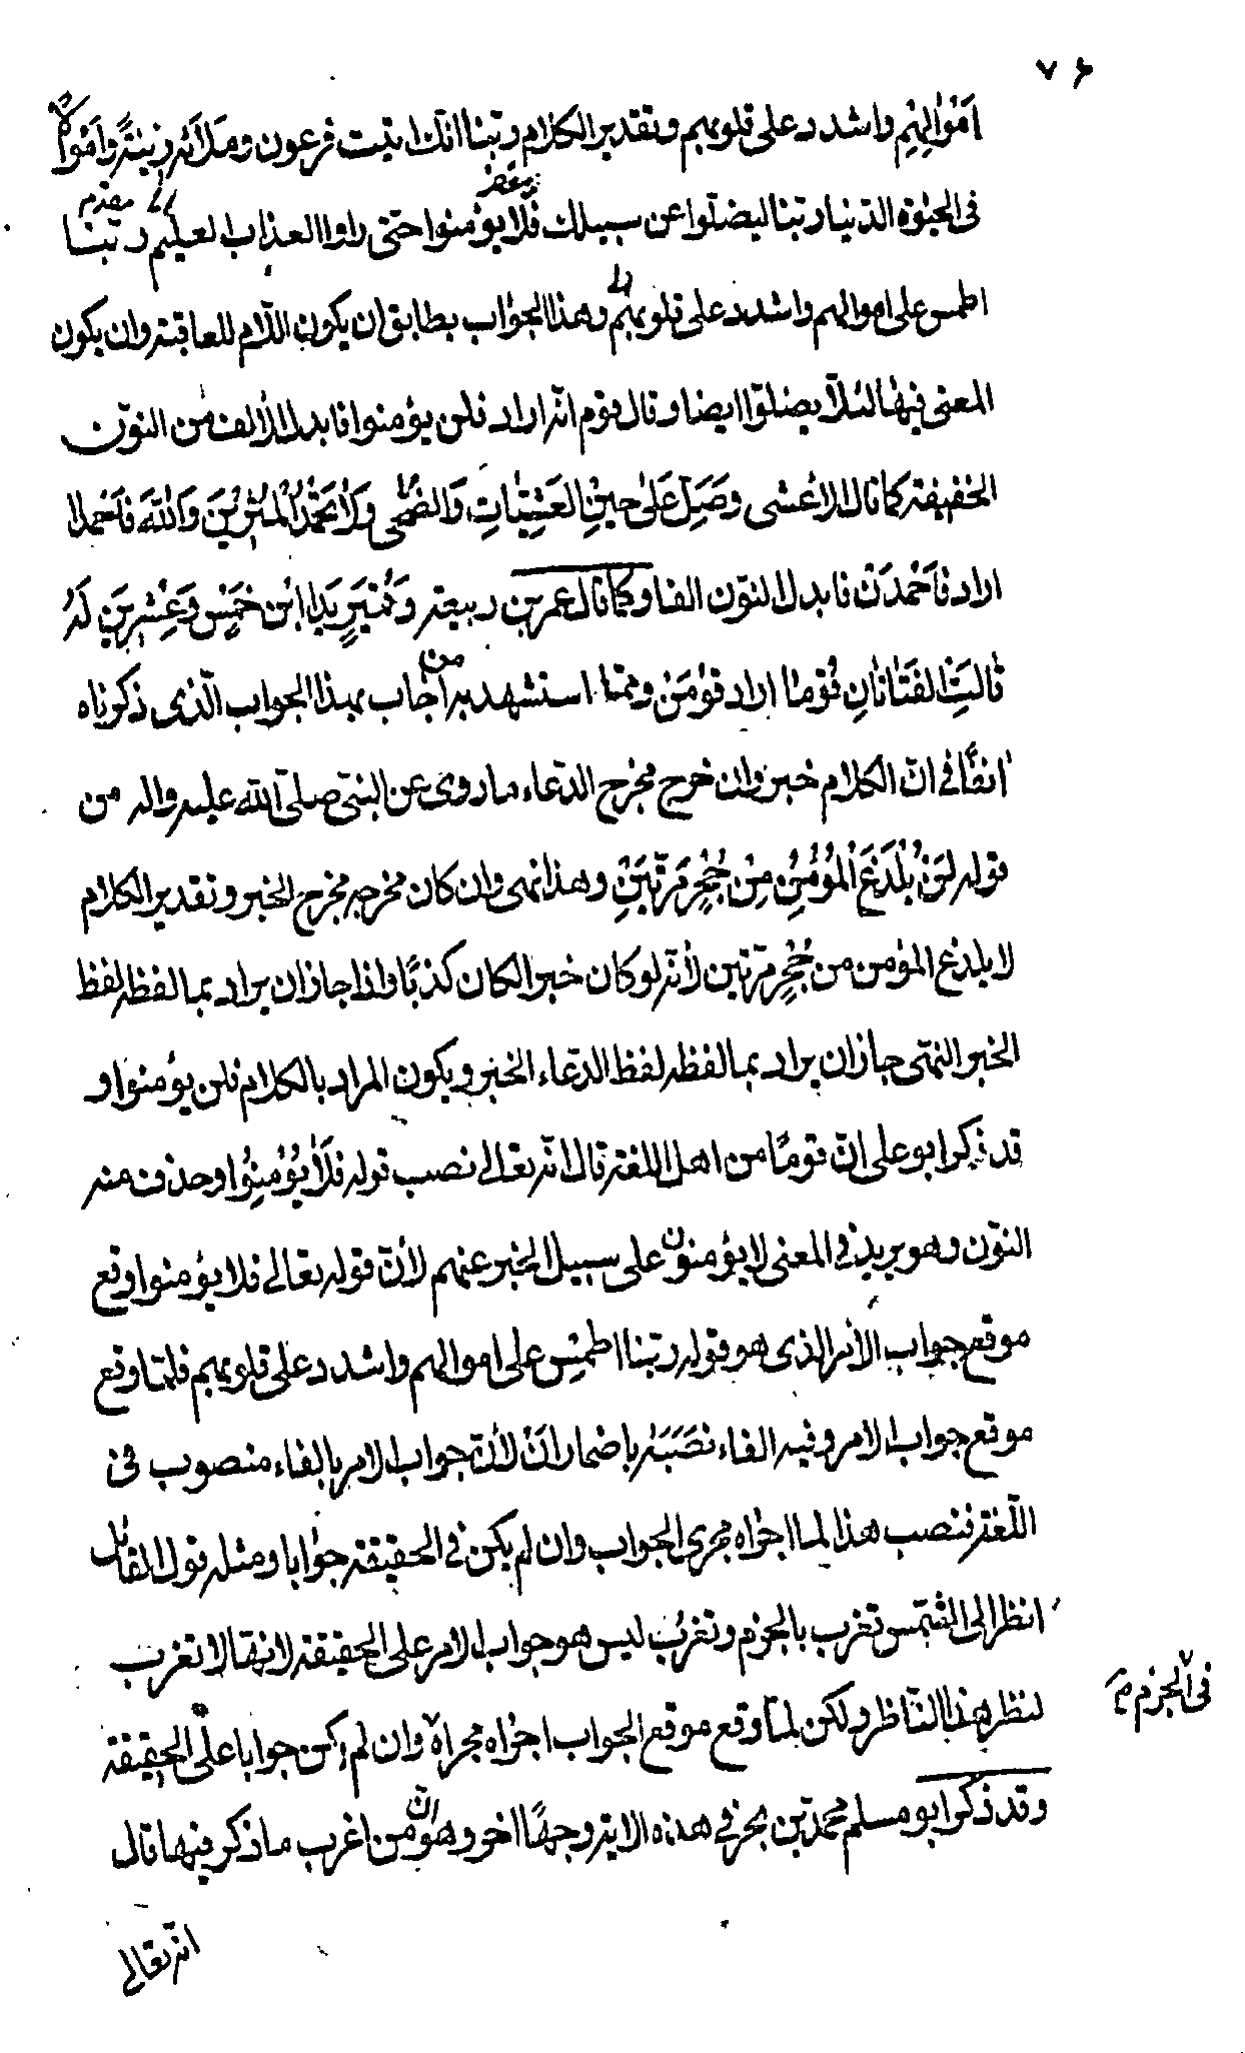 ٧۶
اَمْوٰالِهِمْ واشدد على قلوبهم وتقدير الكلام ربّنا انّك اتيت فرعون وملَاَئه زينَةً وَاَمْوٰالًا
فى الحيٰوة الدّنيا ربّنا ليضلّوا عن سبيلك فَلٰا يؤمنوا حتى راوا العذاب العليم ربّنا
اطمس على اموالهم واشدد على قلوبهم وهذا الجوٰاب يطابق ان يكون اللّام للعاقبة وان يكون
المعنى فيهٰا لئلّا يضلوّا ايضا وقال قوم انّه اراد فلن يؤمنوا فابدل الألف من النوّن
الخفيفة كما قال الاعشى وَصَلِّ عَلىٰ حينِ العَشِيّاتِ وَالضّحىٰ وَلٰا تَحْمَدِ المُثْرينَ وَاللّٰهَ فَاَحْمدا
اراد فاَحْمدَنْ فابدل النوّن الفا وكما قال عمر بن ربيعة وَقُمَيرٍ بَدَا ابْن خَمْسٍ وَعِشْرينَ لَهُ
قالَتِ الفَتٰاتٰانِ قُومٰا اراد قوٰمَنْ وممّا استشهد به من اجٰاب بهذا الجواب الّذى ذكرناه
اٰنفًا فى انّ الكلام خبر وان خرج مخرج الدّعاء ما روى عن النبّى صلّى اللّه عليه واله من
قوله لَنْ يُلْدَغَ الْمُؤْمِنُ مِنْ جُحْرٍ مَرّتَيْنِ وهذا نهى وان كان مخرجه مخرج الخبر وتقدير الكلام
لا يلدغ المؤمن من جُحْرٍ مرّتين لأنّه لو كان خبرا لكان كذبًا واذا جاز ان يراد بما لفظه لفظ
الخبر النهّى جاز ان يراد بما لفظه لفظ الدّعاء الخبر ويكون المراد بالكلام فلن يؤمنوا و
قد ذكر ابو على انّ قومًا من اهل اللغة قال انّه تعالى نصب قوله فَلٰا يُؤْمِنُوا وحذف منه
النوّن وهو يريد فى المعنى لا يؤمنون على سبيل الخبر عنهم لأنّ قوله تعالى فلا يؤمنوا وقع
موقع جواب الأمر الذى هو قوله ربّنا اطمس على اموالهم واشدد على قلوبهم فلمّا وقع
موقع جواب الامر وفيه الفاء نَصَبَهُ باضمار اَنْ لأنّ جواب الامر بالفاء منصوب فى
اللّغة فنصب هذا لمّا اجرٰاه مجرى الجواب وان لم يكن فى الحقيقة جوابا ومثله قول القائل
انظر الى الشّمس تغرب بالجزم وتغرُب ليس هو جواب الامر على الحقيقة لانهّا لا تغرب
لنظر هذا النّاظر ولكن لمّا وقع موقع الجواب اجرٰاه مجراه وان لم يكن جوابا على الحقيقة
فى الجزم
وقد ذكر ابو مسلم محمّد بن بحر فى هذه الاية وجهًا اخر وهو من اغرب ما ذكر فيها قال
انّه تعالى